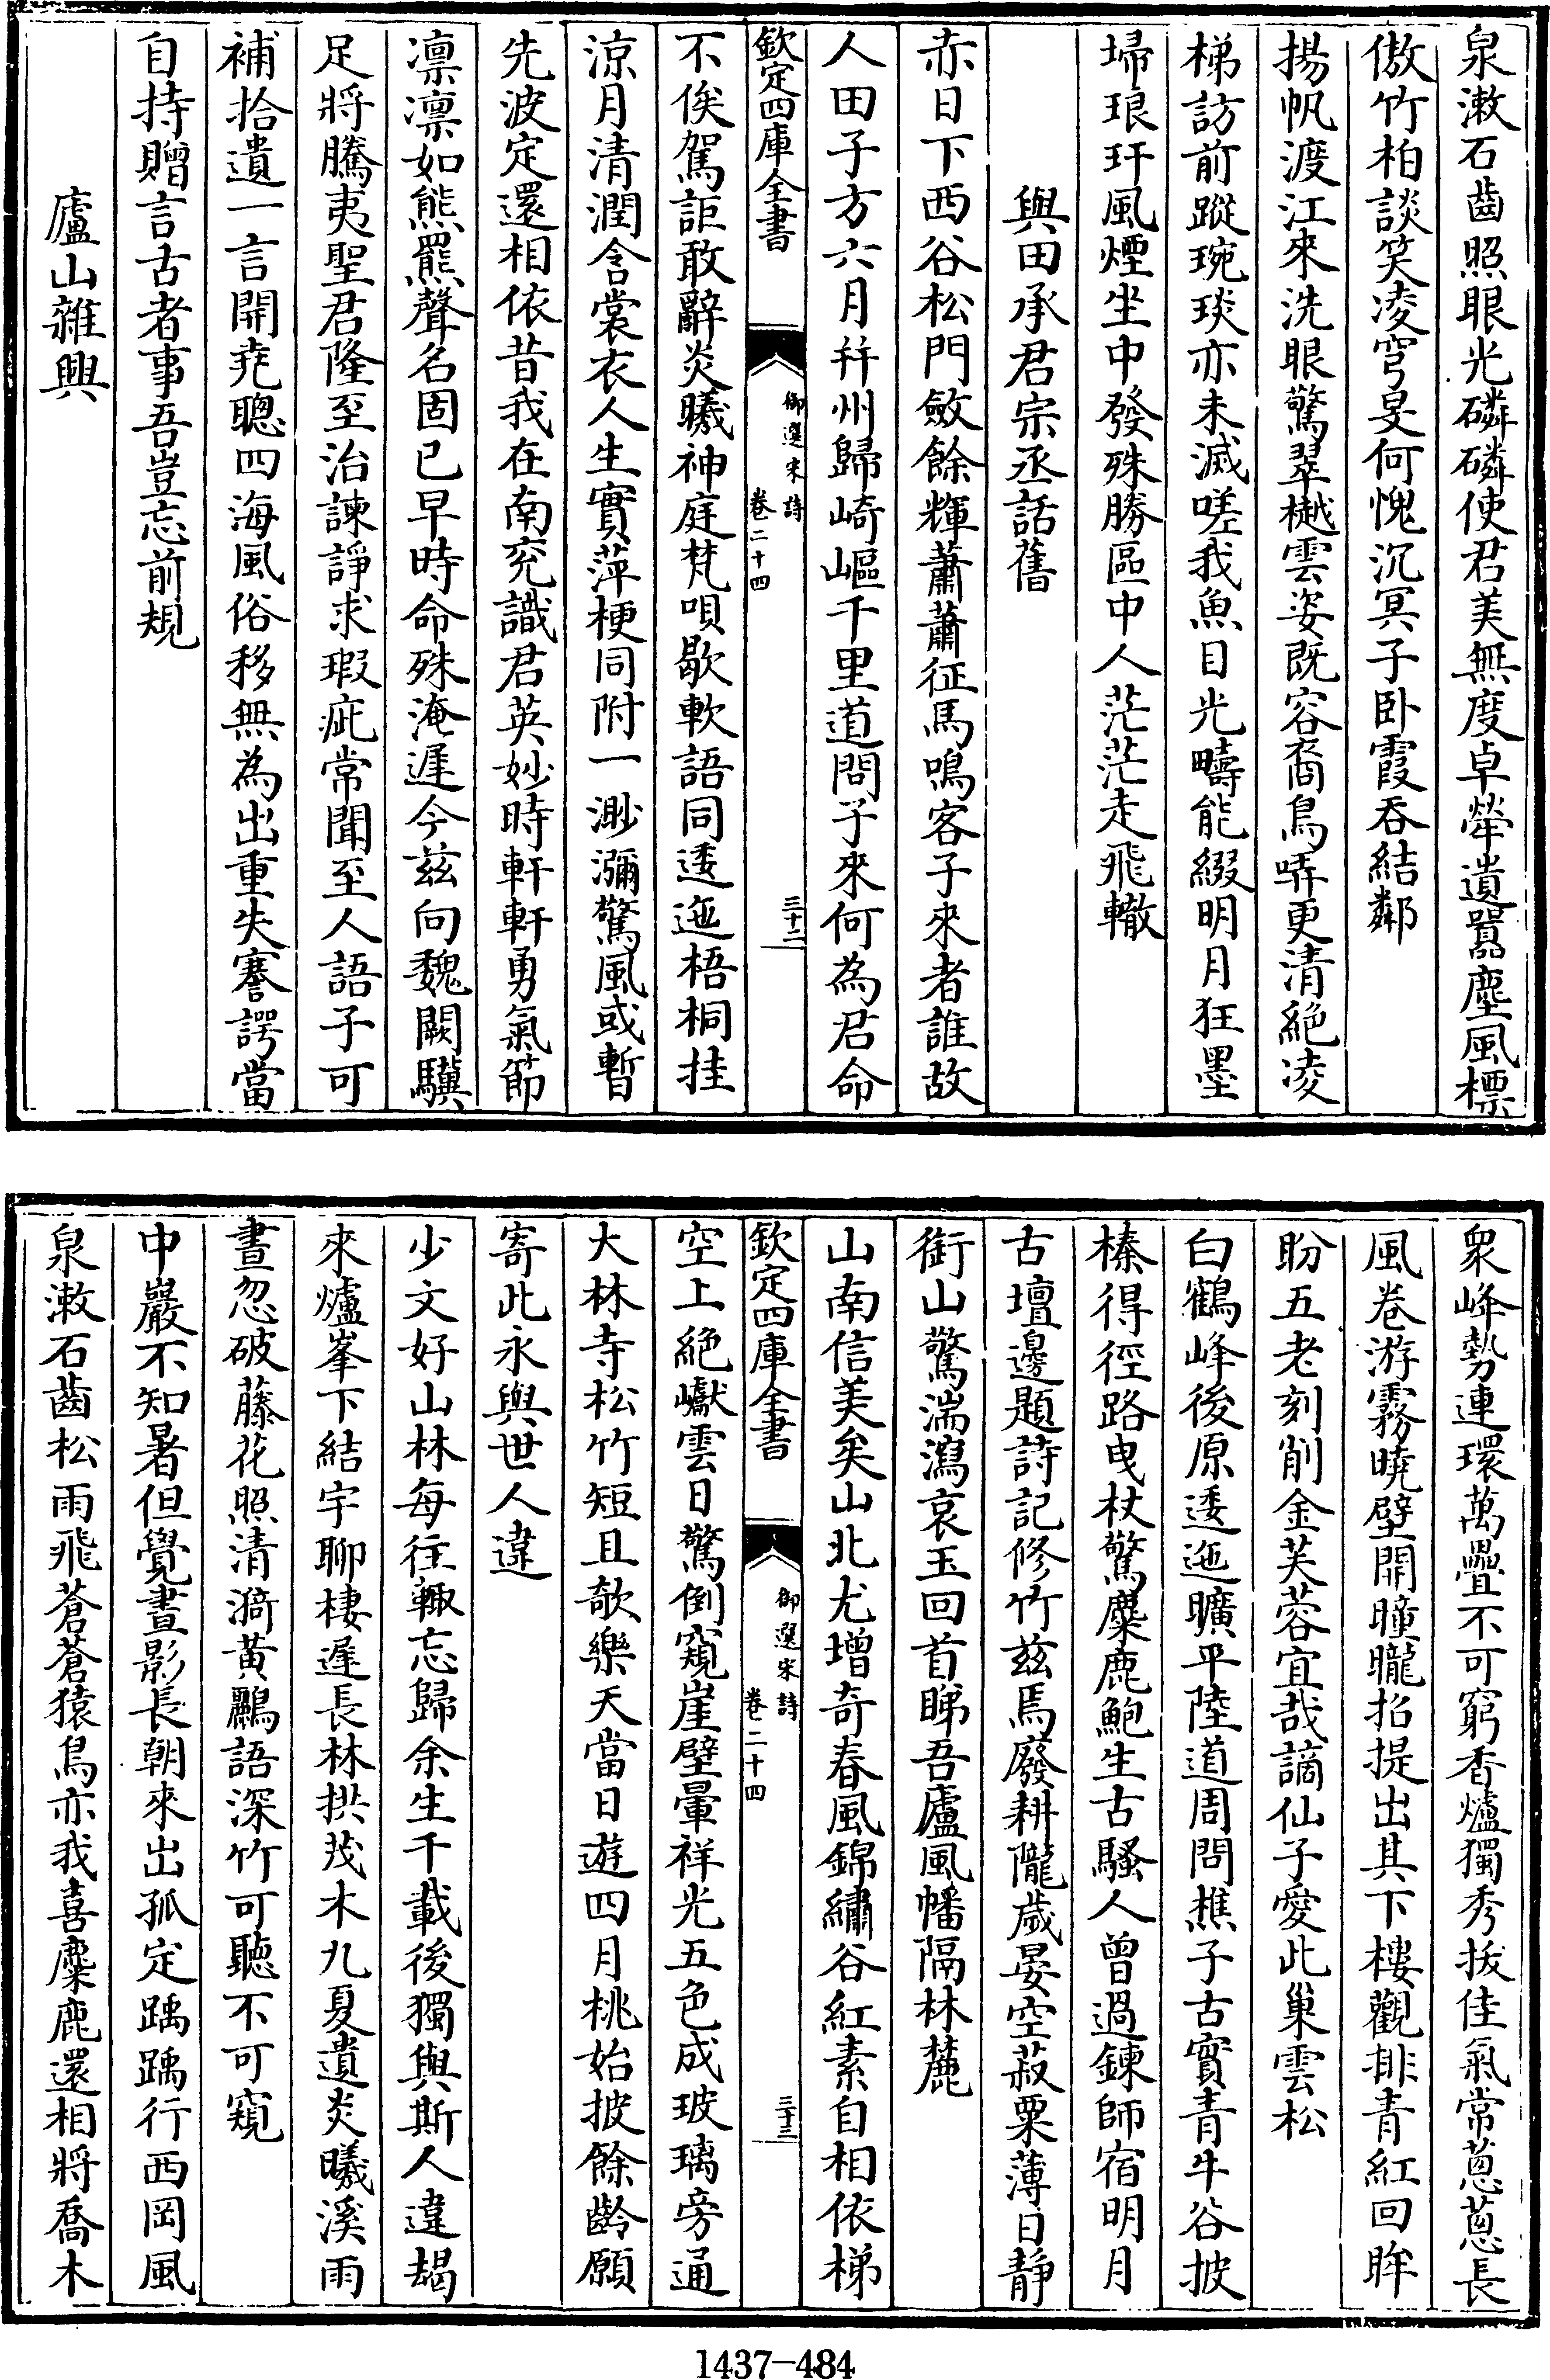 泉漱石齒照眼光磷磷使君美無度卓犖遺囂塵風標
傲竹柏談笑凌穹旻何愧沉冥子卧霞吞結鄰
揚帆渡江來洗眼驚翠樾雲姿既容裔鳥哢更清絶凌
梯訪前蹤琬琰亦未滅嗟我魚目光疇能綴明月狂墨
埽琅玕風煙坐中發殊勝區中人茫茫走飛轍
與田承君宗丞話舊
赤日下西谷松門斂餘輝蕭蕭征馬鳴客子來者誰故
人田子方六月并州歸崎嶇千里道問子來何為君命
欽定四庫全書
御選宋詩
卷二十四
三十二
不俟駕詎敢辭炎曦神庭梵唄歇軟語同逶迤梧桐挂
涼月清潤含裳衣人生實萍梗同附一渺瀰驚風或暫
先波定還相依昔我在南兖識君英妙時軒軒勇氣節
凛凛如熊羆聲名固已早時命殊淹遲今兹向魏闕驥
足將騰夷聖君隆至治諫諍求瑕疵常聞至人語子可
補拾遺一言開堯聰四海風俗移無為出重失謇諤當
自持贈言古者事吾豈忘前規
廬山雜興
衆峰勢連環萬疊不可窮香爐獨秀拔佳氣常葱葱長
風卷游霧曉壁開曈曨招提出其下樓觀排青紅回眸
盼五老刻削金芙蓉宜哉謫仙子愛此巢雲松
白鶴峰後原逶迤曠平陸道周問樵子古實青牛谷披
榛得徑路曳杖驚麋鹿鮑生古騷人曾過鍊師宿明月
古壇邊題詩記修竹兹焉廢耕隴歲晏空菽粟薄日靜
銜山驚湍瀉哀玉回首睇吾廬風幡隔林麓
山南信美矣山北尤增奇春風錦繡谷紅素自相依梯
欽定四庫全書
御選宋詩
卷二十四
三十三
空上絶巘雲日驚倒窺崖壁暈祥光五色成玻璃旁通
大林寺松竹短且欹樂天當日遊四月桃始披餘齡願
寄此永與世人違
少文好山林每往輒忘歸余生千載後獨與斯人違朅
來爐峯下結宇聊棲遲長林拱茂木九夏遺炎曦溪雨
晝忽破藤花照清漪黄鸝語深竹可聽不可窺
中巖不知暑但覺晝影長朝來出孤定踽踽行西岡風
泉漱石齒松雨飛蒼蒼猿鳥亦我喜麋鹿還相將喬木
1437-484